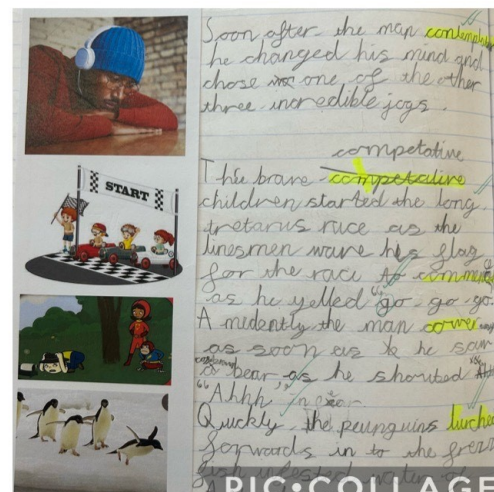 START
Soon after the man contempla
he changed his mind and
chose one of the other
three incredible jogs.
competative
The brave competative
children started the long
tretarus race as the
linesmen wave his flag
for the race to comme
as he yelled "go go go
A midently the man cower
as soon as he saw
a bear as he shouted
"Ahhh
Quickly the peunguins lurche
forwards in to the freez
PIC•COLLAGE